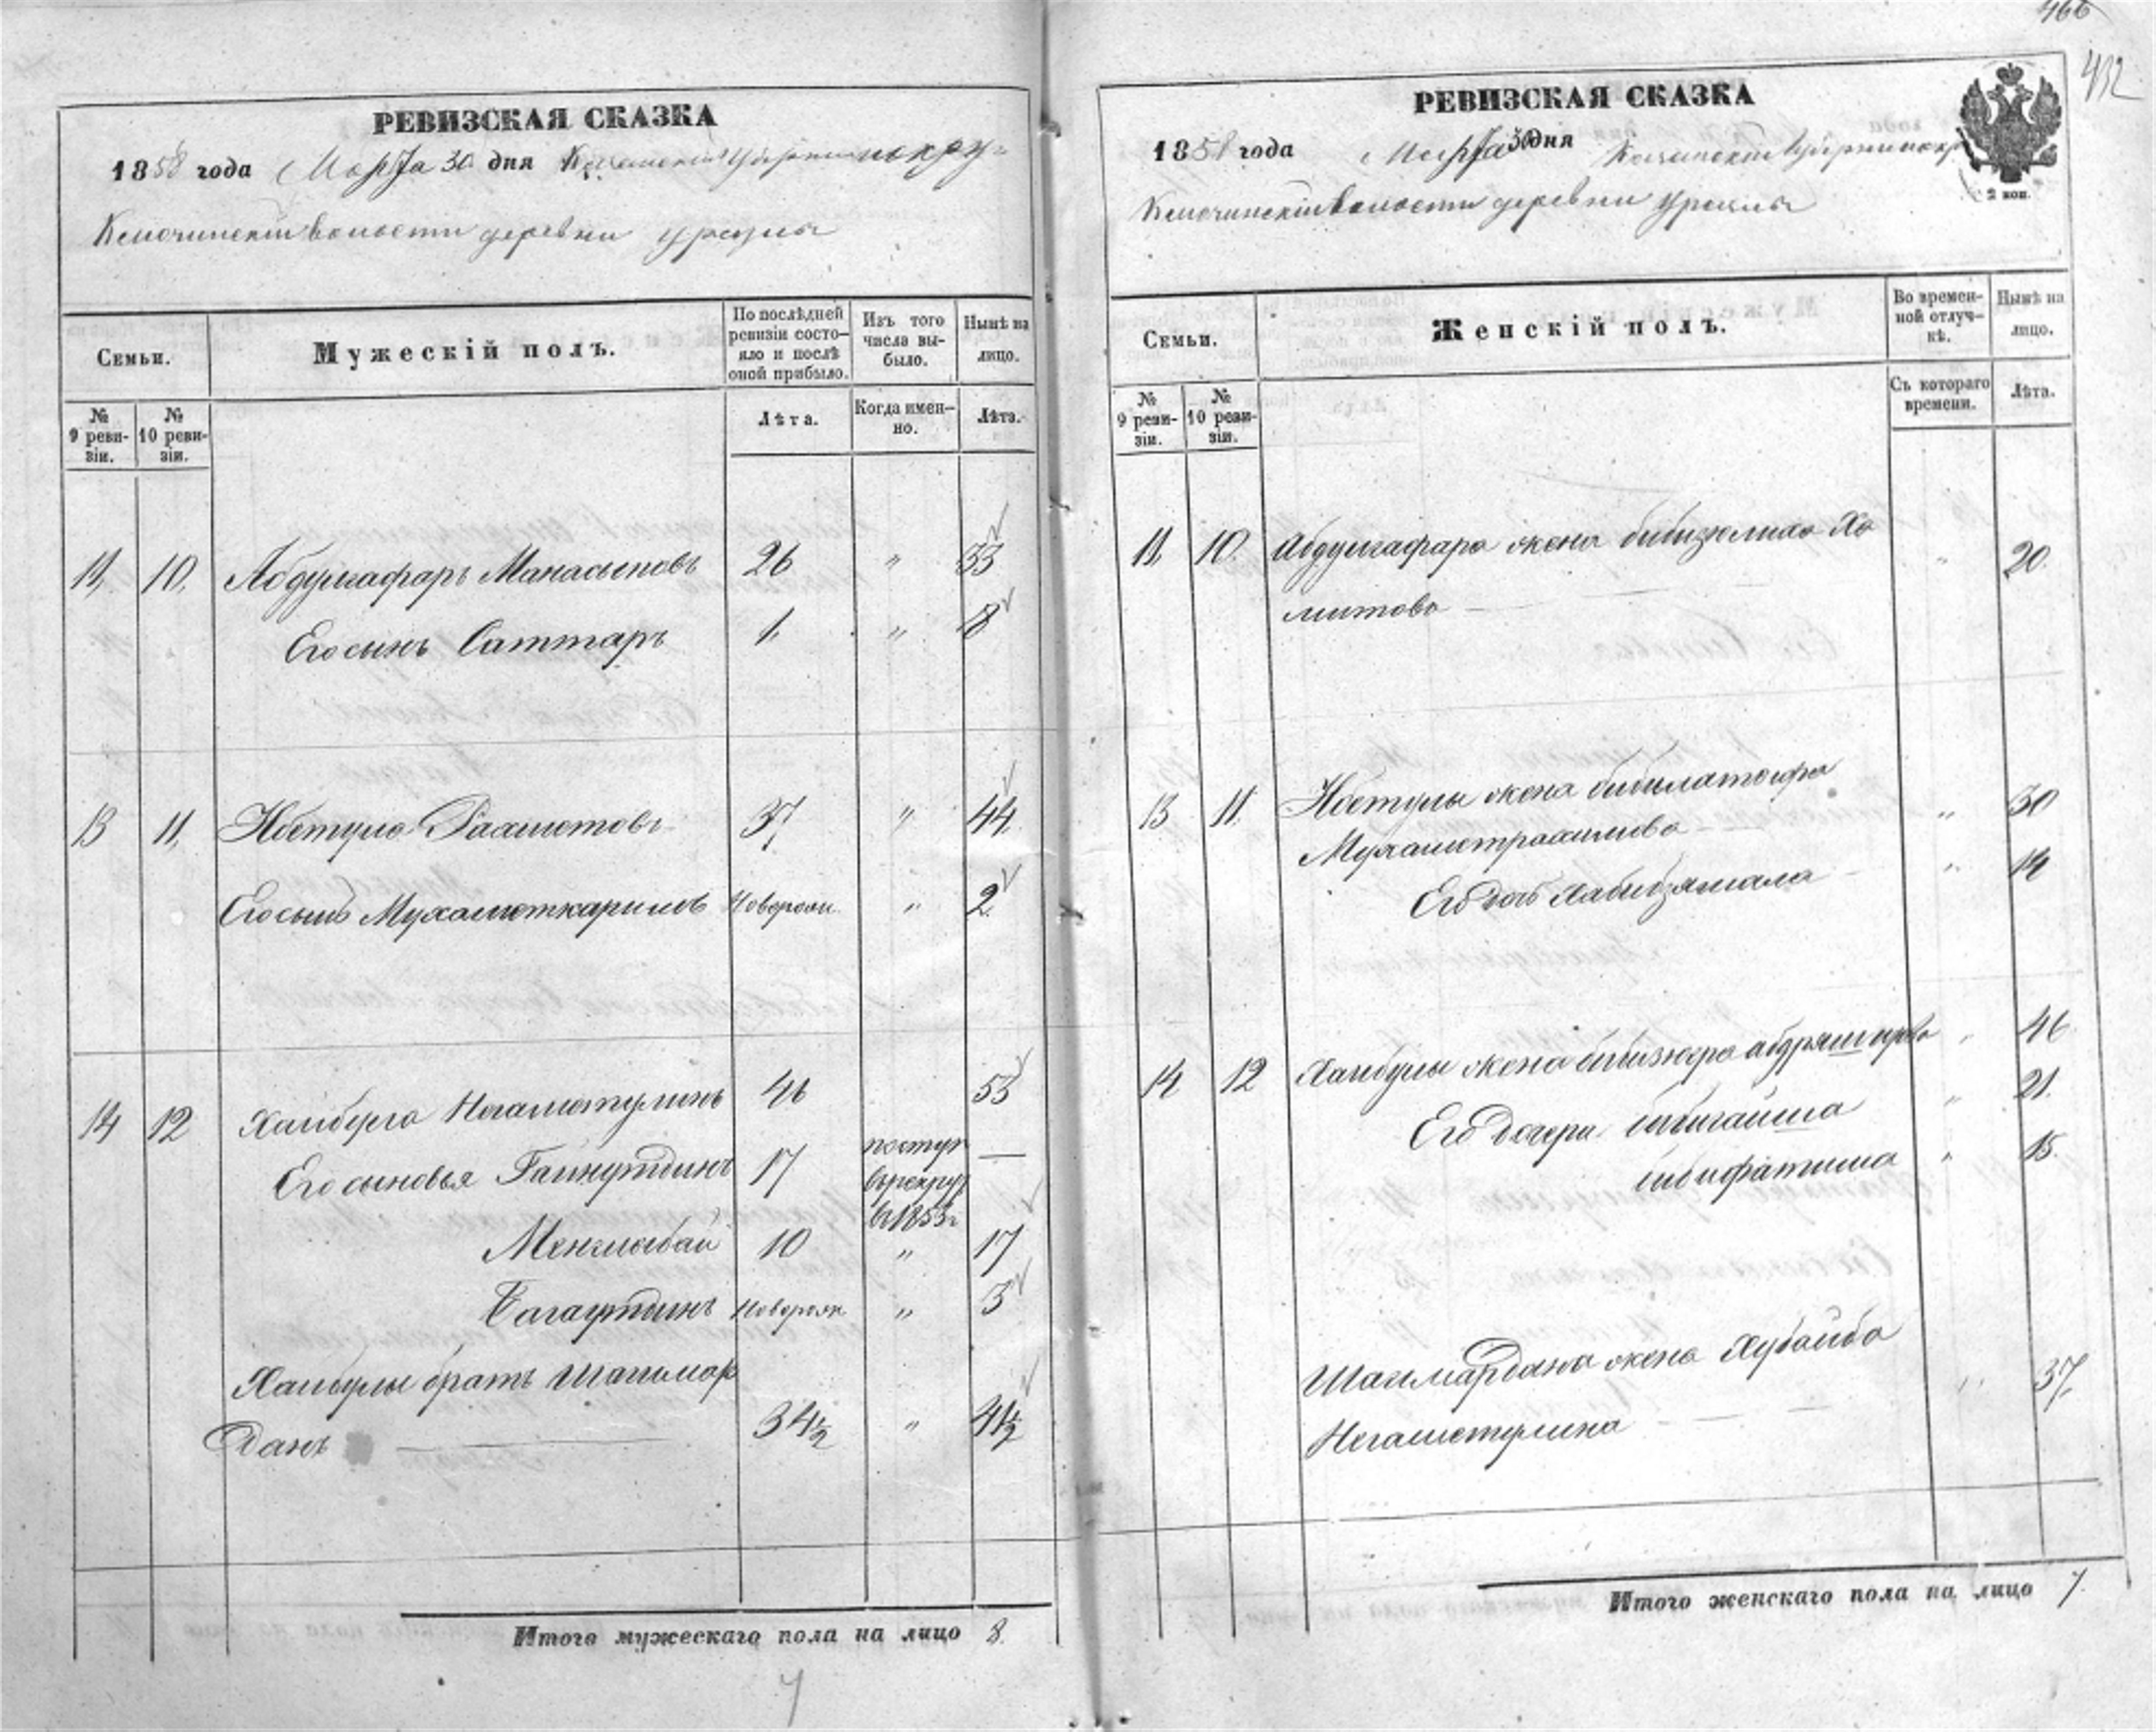 466
432
РЕВИЗСКАЯ СКАЗКА
1858 года Марта 30 дня Казанской Губерніи
волости деревни
Семьи.
Мужескій полъ.
По послѣдней ревизіи состо-
яло и послѣ оной прибыло.
Изъ того числа вы-
было.
Нынѣ на лицо.
№ 9 реви-
зіи.
№ 10 реви-
зіи.
Лѣта.
Когда имен-
но.
Лѣта.
11, 10, Абдулгафаръ Манасыповъ 26 " 33
Его сынъ Саттаръ 1, " 8
13 11, Рахметовъ 37 " 44
Его сынъ Мухаметкаримовъ Новорожд. " 2
14 12 Хайбула Негаметулинъ 46 53
Его сыновья Гайнутдинъ 17 поступ
в рекру
в 1853 г —
Менглыбай 10 " 17
Багаутдинъ новорож " 3
Хайбулы братъ Шагимар
данъ 34½ " 41½
Итого мужескаго пола на лицо 8.
РЕВИЗСКАЯ СКАЗКА
1858 года Марта 30 дня Казанской Губерніи
2 коп.
волости деревни
Семьи.
Женскій полъ.
Во времен-
ной отлуч-
кѣ.
Нынѣ на лицо.
№ 9 реви-
зіи.
№ 10 реви-
зіи.
Съ котораго времени.
Лѣта.
11, 10. Абдулгафара жена Ха " 20.
митова
13 11. жена бибилатифа " 30
Мухаметрахимова
Его дочь Хабибзямала " 14
14 12 Хайбулы жена " 46
Его дочери бибигайша " 21.
бибифатима " 15.
Шагимардана жена Хубайба " 37,
Негаметулина
Итого женскаго пола на лицо 7.